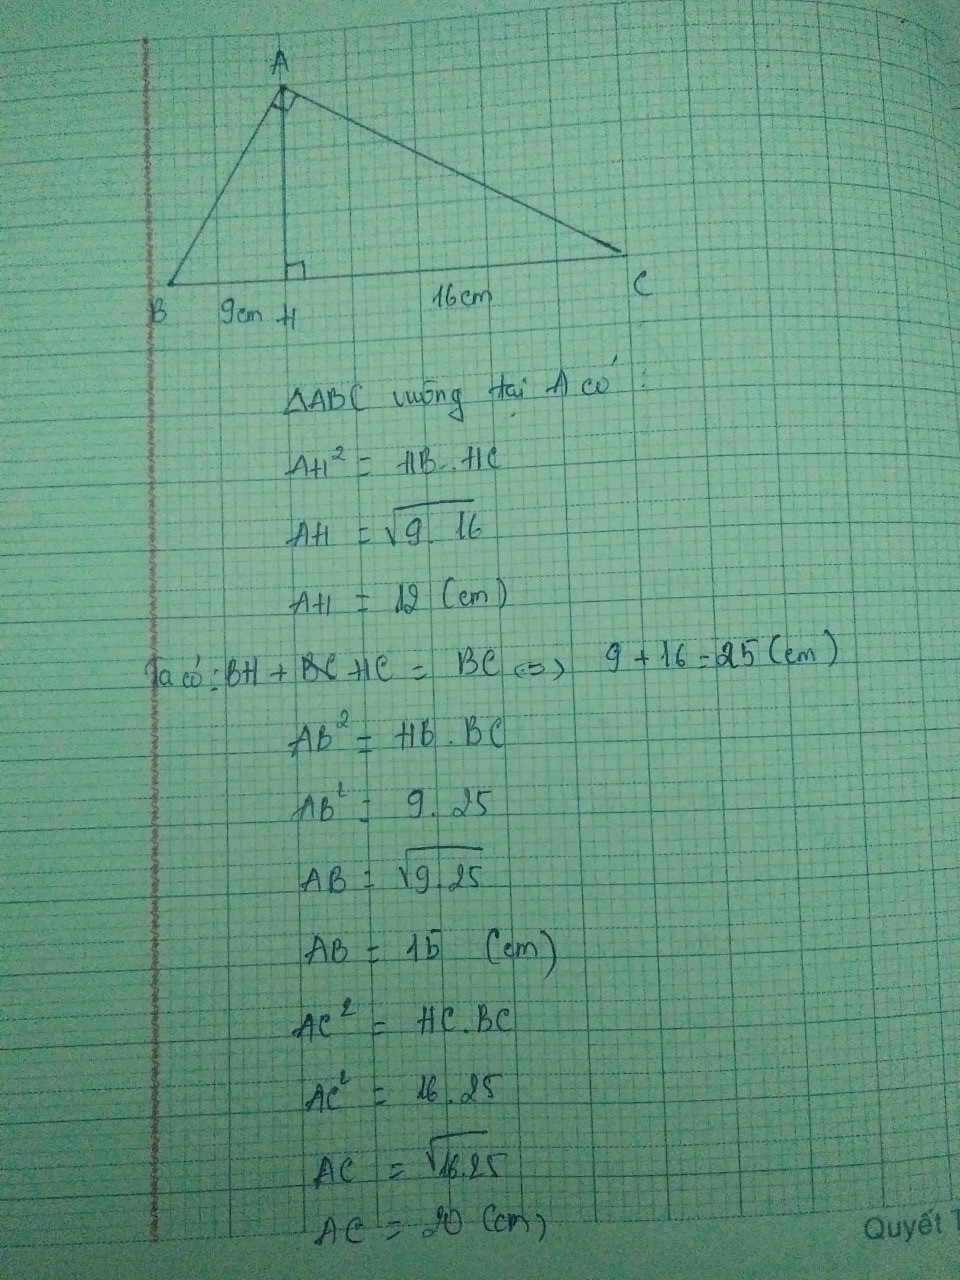 A
B 9cm H 16cm C
ΔABC vuông tại A có :
AH² = HB . HC
AH = √9. 16
AH = 12 (cm)
Ta có : BH + HC = BC <=> 9 + 16 = 25 (cm)
AB² = HB . BC
AB² = 9. 25
AB = √9.25
AB = 15 (cm)
AC² = HC.BC
AC² = 16.25
AC = √16.25
AC = 20 (cm)
Quyết